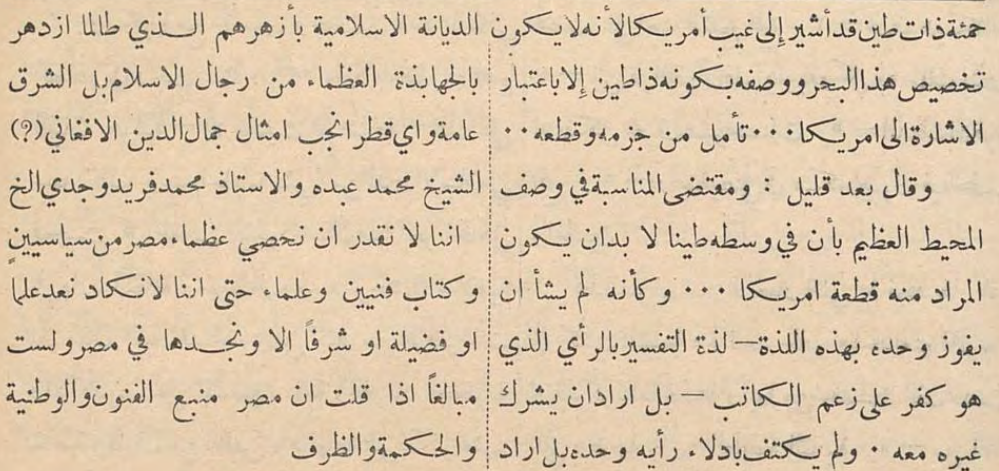 حمئة ذات طين قد أشير إلى غيب أمريكا لأنه لا يكون
تخصيص هذا البحر ووصفه بكونه ذا طين إلا باعتبار
الاشارة الى امريكا ٠٠٠ تأمل من جزمه وقطعه ٠٠
وقال بعد قليل : ومقتضى المناسبة في وصف
المحيط العظيم بأن في وسطه طينا لا بد ان يكون
المراد منه قطعة امريكا ٠٠٠ وكأنه لم يشأ ان
يفوز وحده بهذه اللذة — لذة التفسير بالرأي الذي
هو كفر على زعم الكاتب — بل اراد ان يشرك
غيره معه ٠ ولم يكتف بادلاء رأيه وحده بل اراد
الديانة الاسلامية بأزهرهم الذي طالما ازدهر
بالجهابذة العظماء من رجال الاسلام بل الشرق
عامة واي قطر انجب امثال جمال الدين الافغاني (؟)
الشيخ محمد عبده والاستاذ محمد فريد وجدي الخ
اننا لا نقدر ان نحصي عظماء مصر من سياسيين
وكتاب فنيين وعلماء حتى اننا لا نكاد نعد علما
او فضيلة او شرفاً الا ونجدها في مصر ولست
مبالغاً اذا قلت ان مصر منبع الفنون والوطنية
والحكمة والظرف